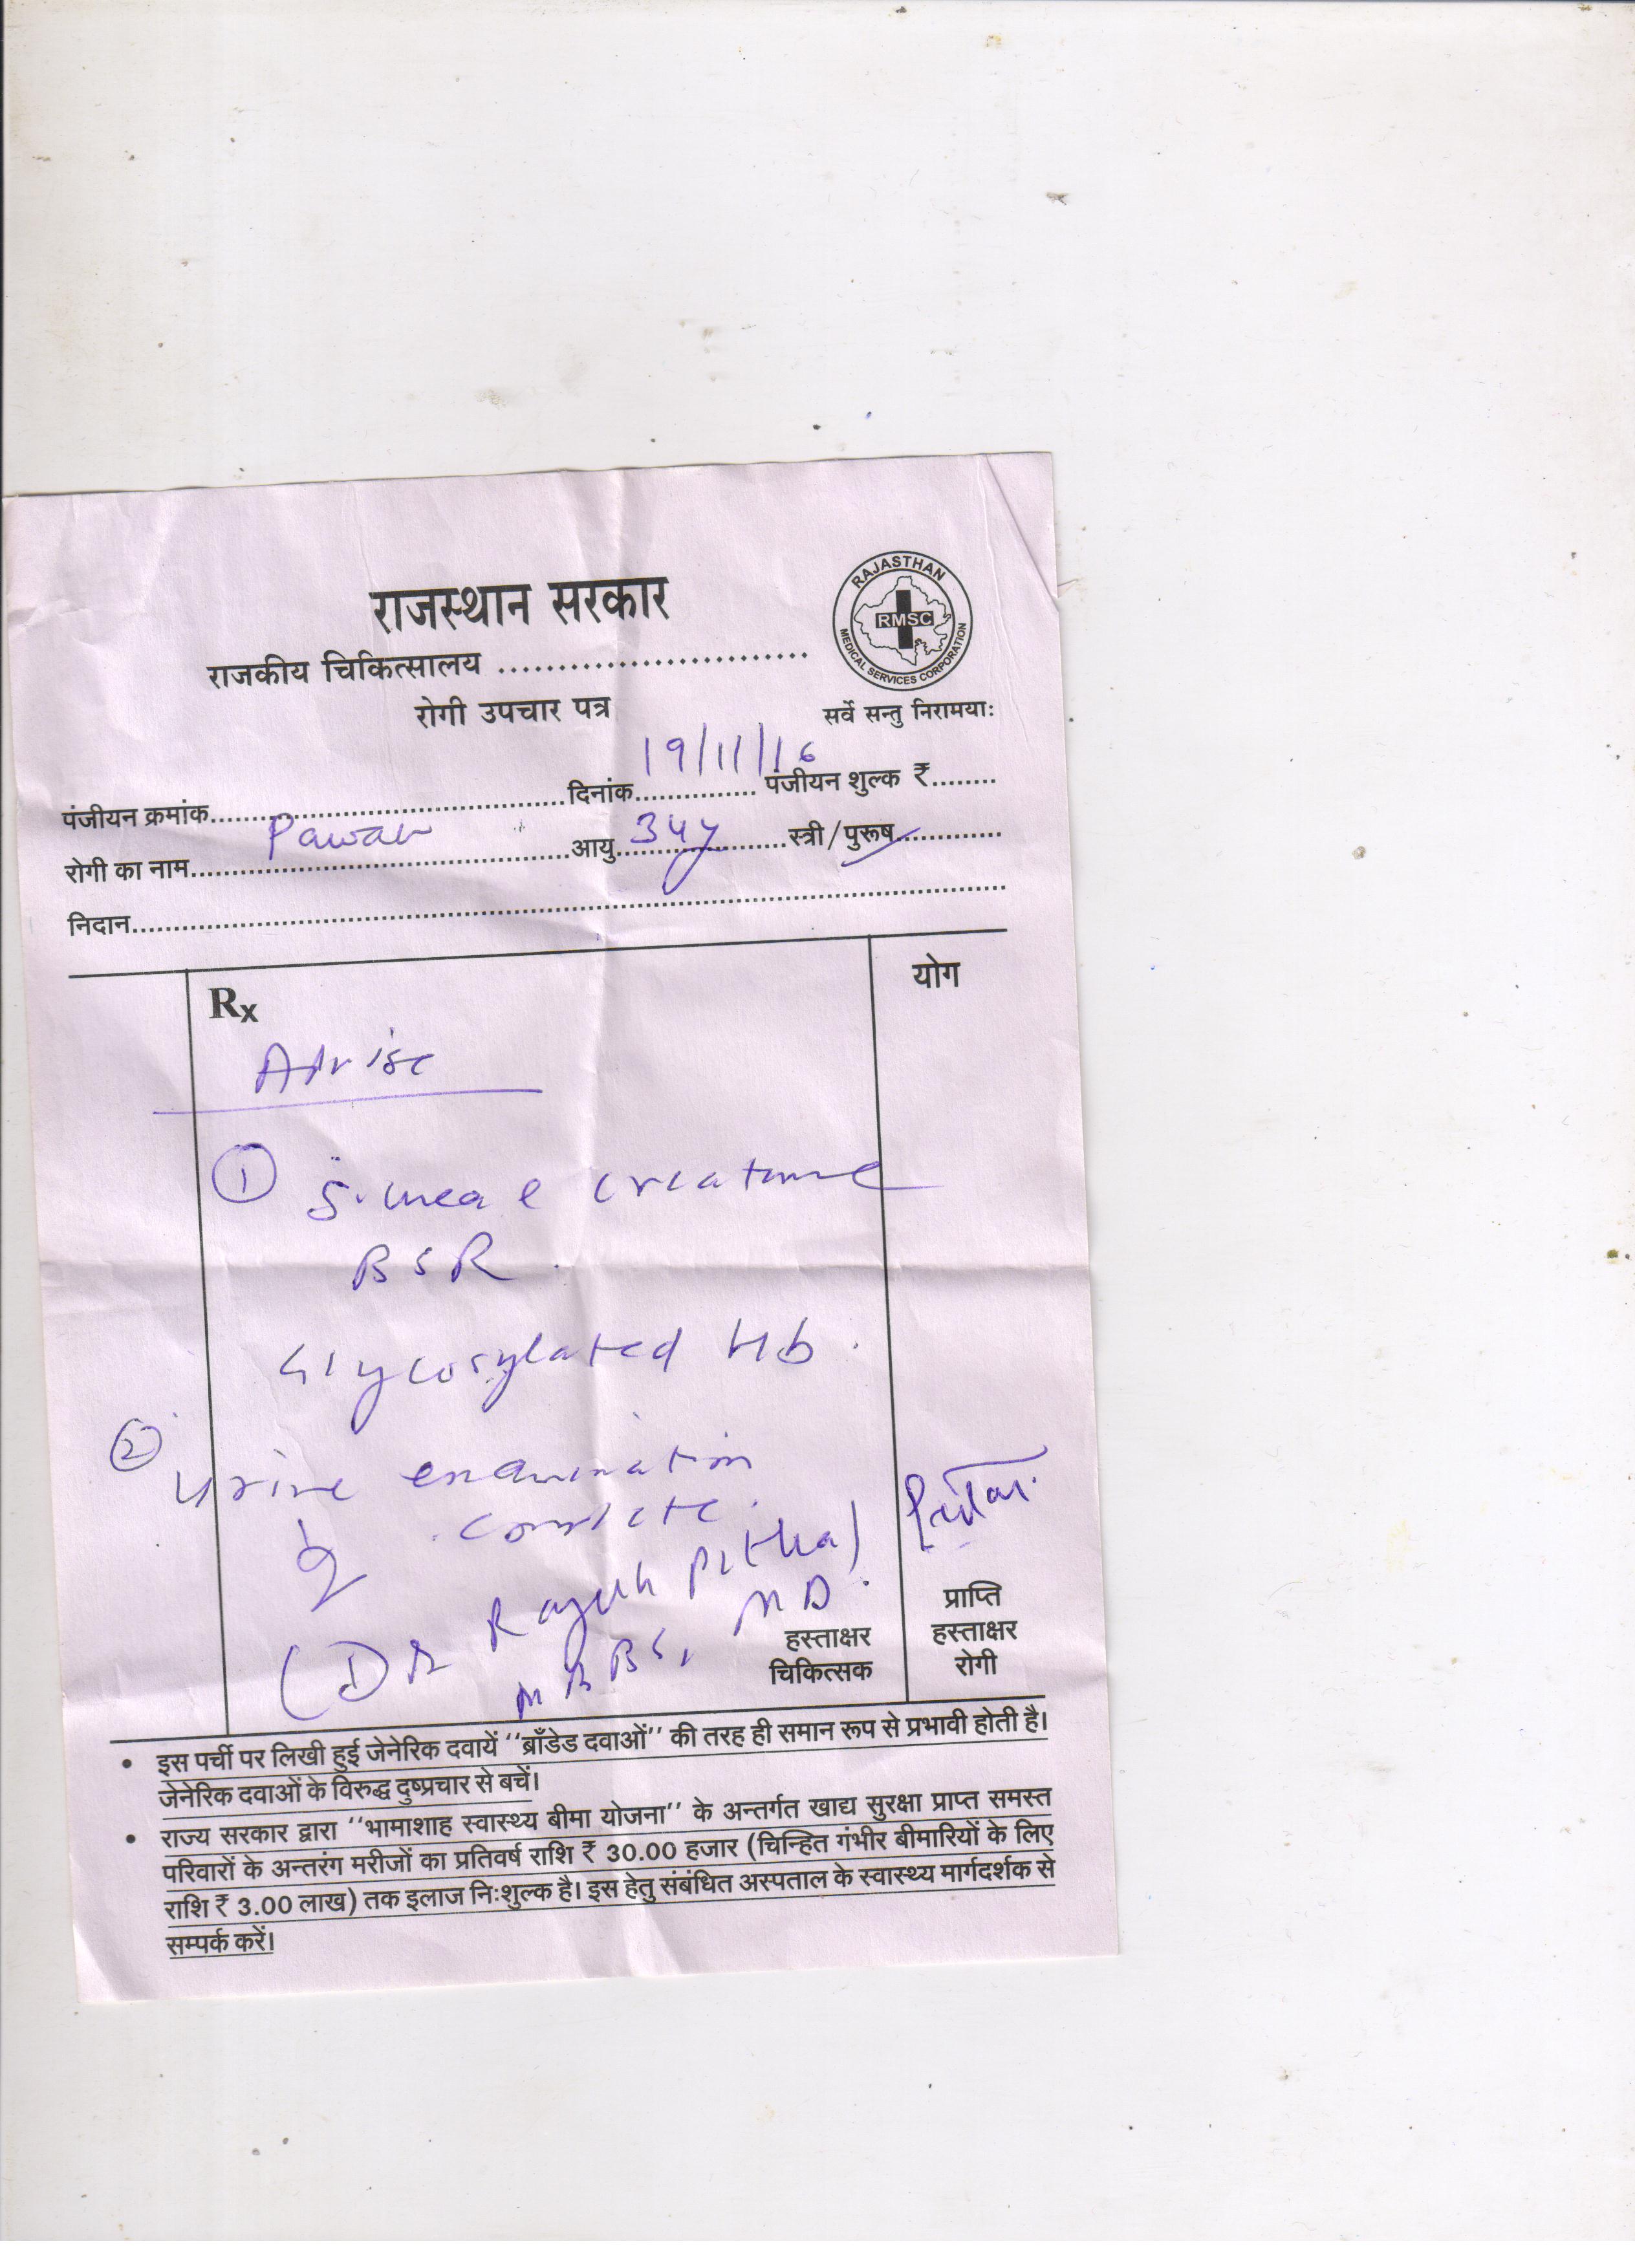 राजस्थान सरकार
RAJASTHAN
RMSC
MEDICAL SERVICES CORPORATION
राजकीय चिकित्सालय ..........................
रोगी उपचार पत्र
सर्वे सन्तु निरामयाः
पंजीयन क्रमांक..........दिनांक 19/11/16 पंजीयन शुल्क ₹........
रोगी का नाम Pawan आयु 34y स्त्री/पुरूष..........
निदान..........
Rx
योग
Advise
① S. urea e creatinine
BSR
Glycosylated Hb.
② Urine examination
complete.
(DR Rajesh
MBBS, MD.
हस्ताक्षर
चिकित्सक
प्राप्ति
हस्ताक्षर
रोगी
• इस पर्ची पर लिखी हुई जेनेरिक दवायें ''ब्रॉंडेड दवाओं'' की तरह ही समान रूप से प्रभावी होती है।
जेनेरिक दवाओं के विरुद्ध दुष्प्रचार से बचें।
• राज्य सरकार द्वारा ''भामाशाह स्वास्थ्य बीमा योजना'' के अन्तर्गत खाद्य सुरक्षा प्राप्त समस्त
परिवारों के अन्तरंग मरीजों का प्रतिवर्ष राशि ₹ 30.00 हजार (चिन्हित गंभीर बीमारियों के लिए
राशि ₹ 3.00 लाख) तक इलाज निःशुल्क है। इस हेतु संबंधित अस्पताल के स्वास्थ्य मार्गदर्शक से
सम्पर्क करें।